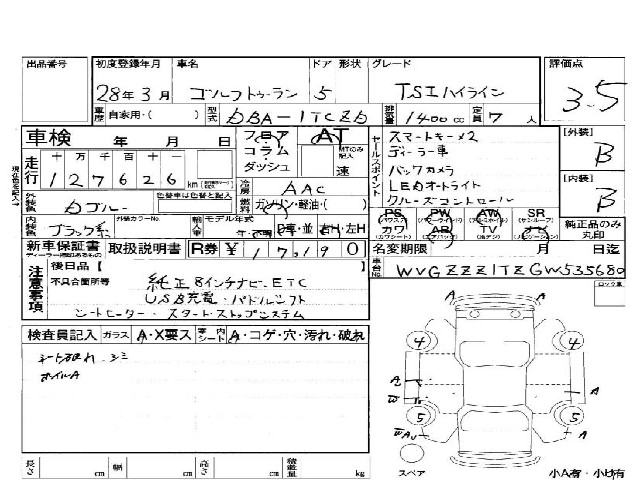 出品番号 初度登録年月 車名 ドア 形状 グレード 評価点
28年3月 ゴルフトゥーラン 5 TSIハイライン 3.5
車歴 自家用・( ) 型式 DBA-1TCZD 排気量 1400cc 定員 7人
車検 年 月 日 フロア AT セールスポイント スマートキー×2 [外装]
コラム MTのみ記入 ディーラー車 B
走行 十 万 千 百 十 一 ダッシュ 速 バックカメラ
127626 km 冷房 AAC LEDオートライト [内装]
外装色 Dブルー 色替車は色替と記入 燃料 ガソリン・軽油・( ) クルーズコントロール B
内装色 ブラック系 外装カラーNo. 輸入車 モデル年式 D車・並 右H・左H
PS PW AW SR
カワ AB TV ナビ 純正品のみ丸印
新車保証書 取扱説明書 R券 ¥17190 名変期限 月 日迄
注意事項 後日品【 】 車台No. WVGZZZ1TZGW535680
不具合箇所等 純正8インチナビ・ETC ロック車
USB充電・パドルシフト
シートヒーター・スタートストップシステム
検査員記入 ガラス A・X要ス 内シート A・コゲ・穴・汚れ・破れ
シート破れ・シミ
ホイルA
A
A
4 4
A A
W
5 5
A
スペア
長さ cm 幅 cm 高さ cm 積載量 kg
小A有・小キ有